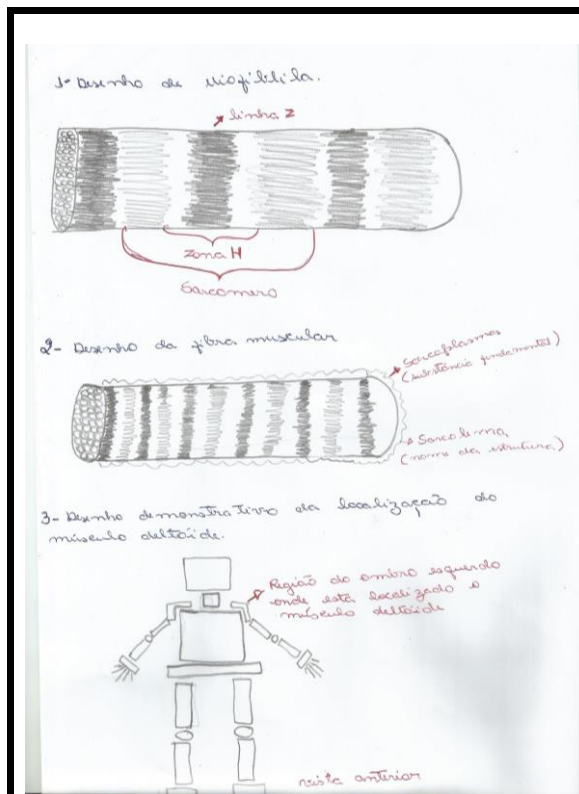 1º Desenho de Miofibrila.
linha Z
Zona H
Sarcomero
2- Desenho da fibra muscular
Sarcoplasmas
(substância fundamental)
Sarcolema
(nome da estrutura)
3- Desenho demonstrativo da localização do
músculo deltóide.
Região do ombro esquerdo
onde está localizado o
músculo deltóide
vista anterior